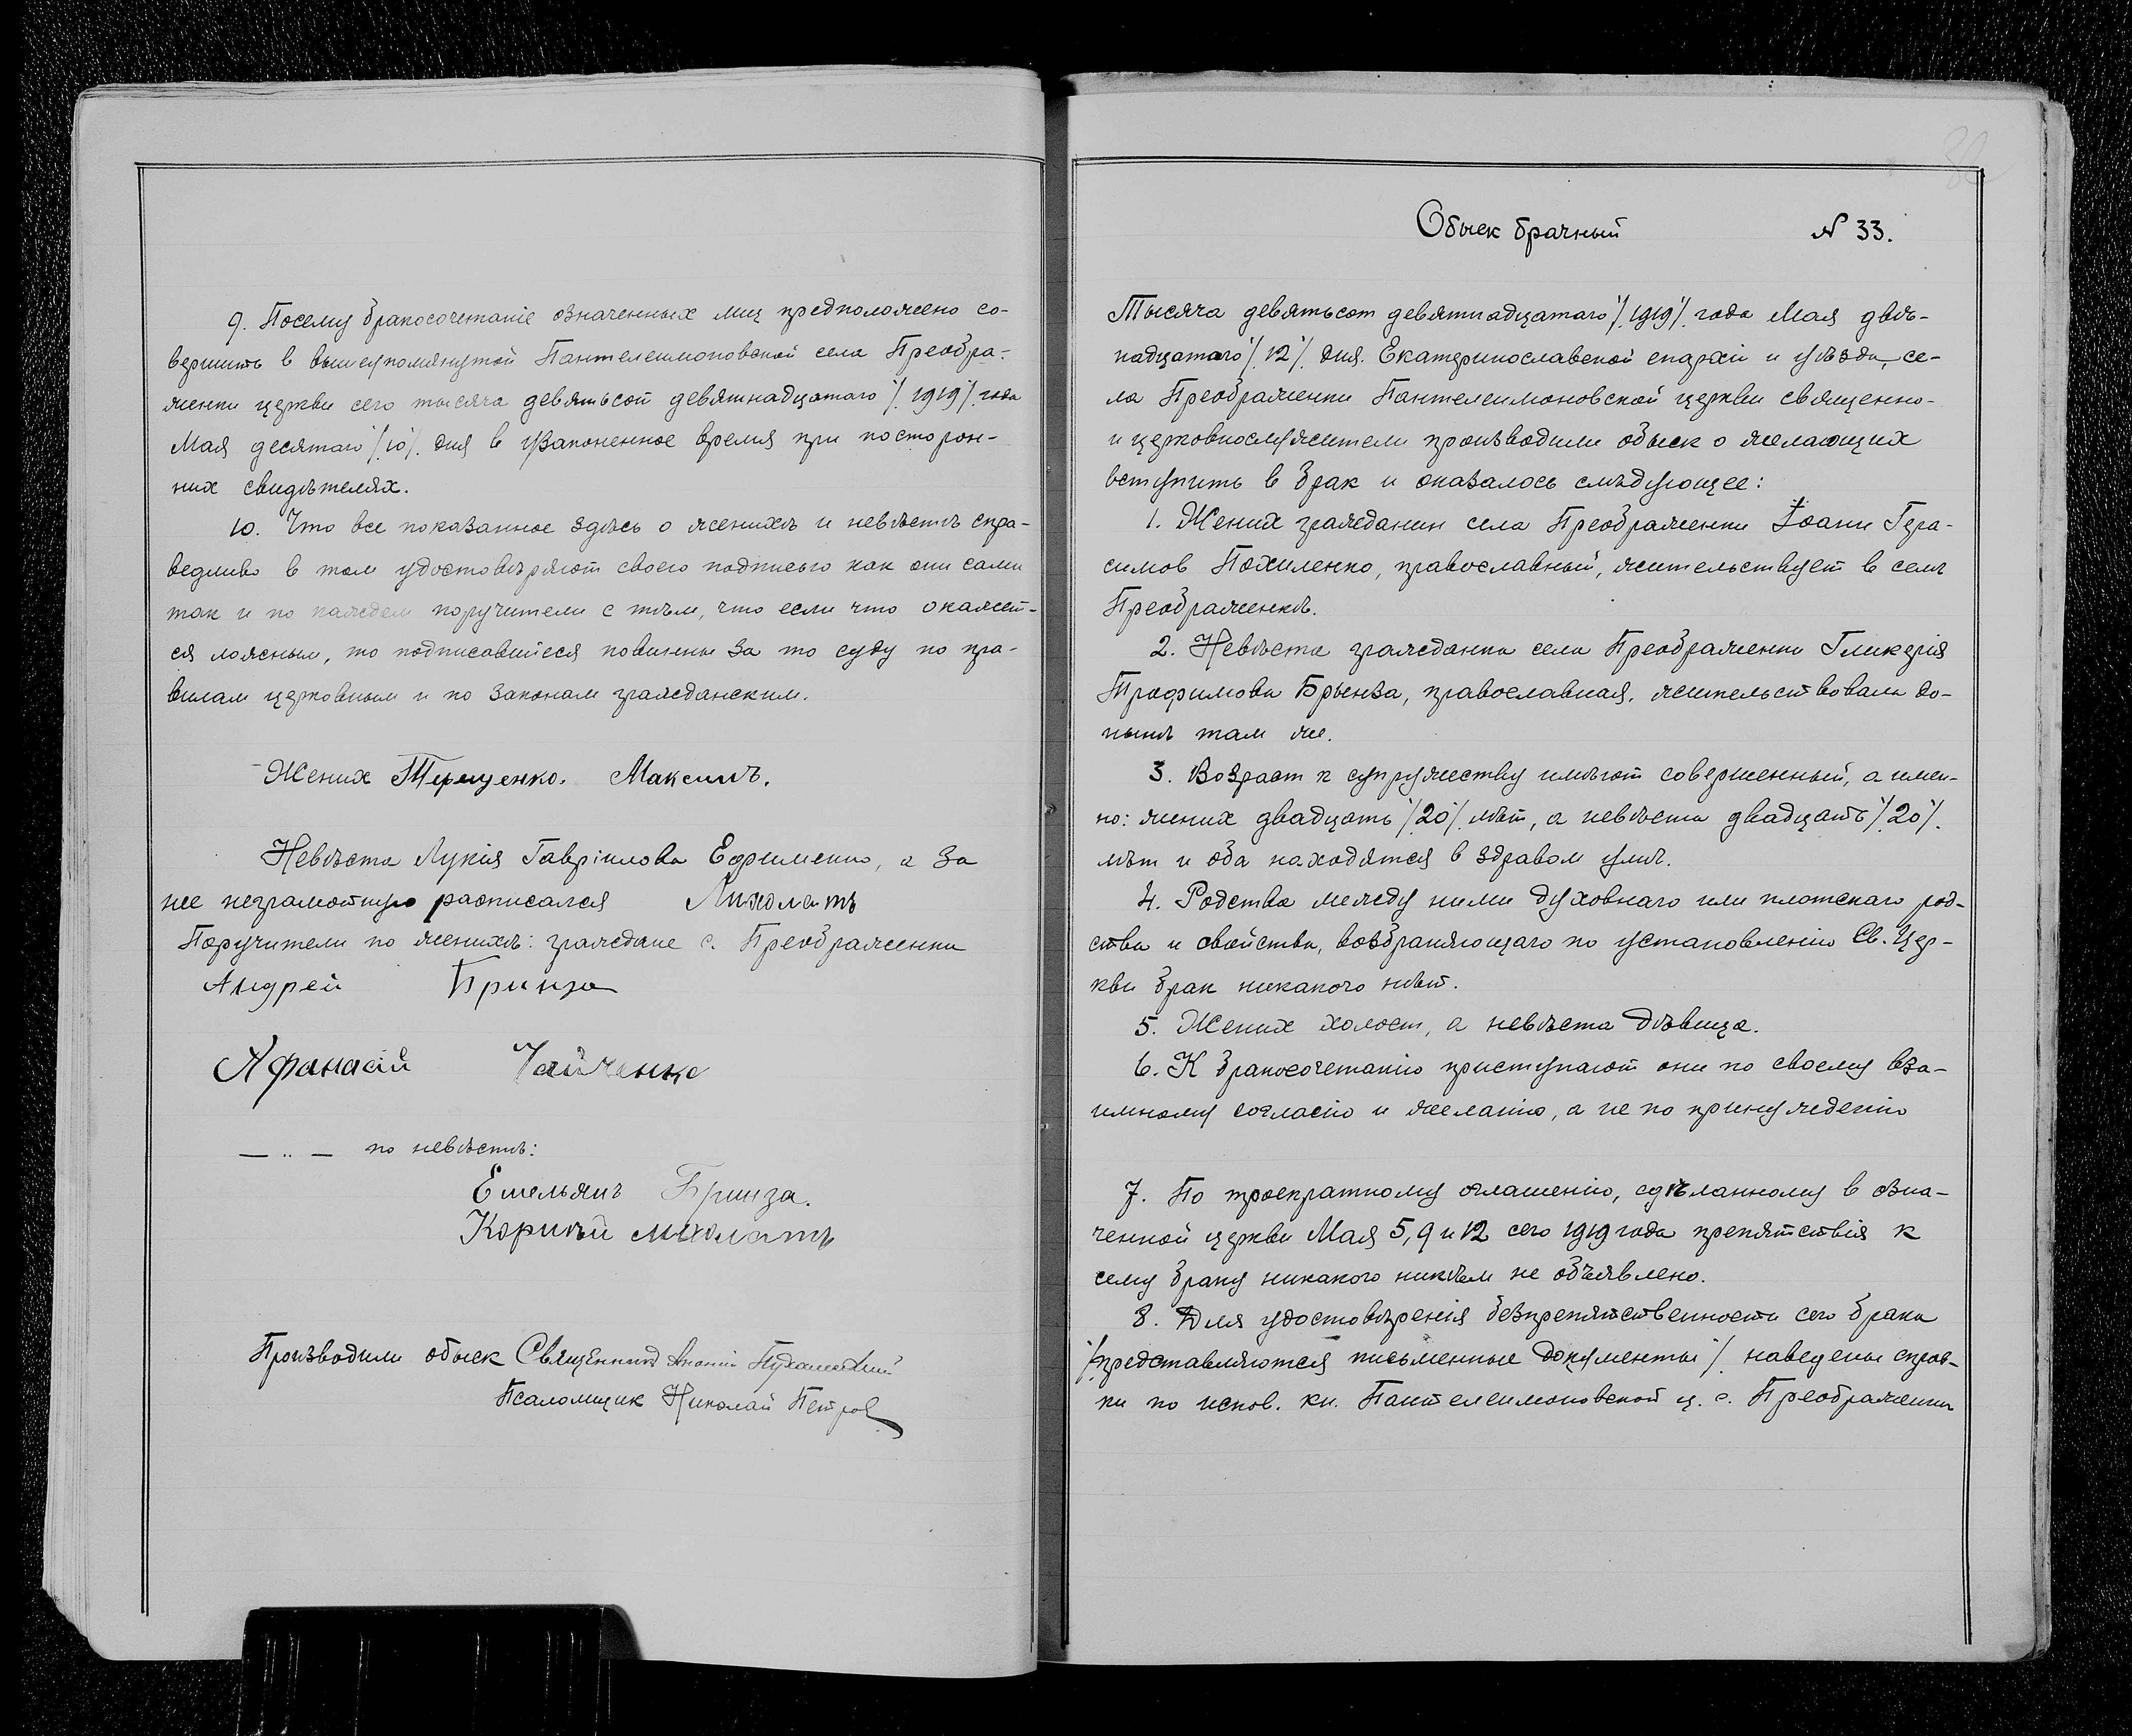 9. Посему бракосочетаніе означенных лиц предположено со-
вершить в вышеупомянутой Пантелеимоновской села Преобра-
женки церкви сего тысяча девятьсот девятнадцатаго /.1919/. года
Мая десятаго /.10/. дня в узаконенное время при посторон-
них свидѣтелях.
10. Что все показанное здѣсь о женихѣ и невѣстѣ спра-
ведливо в том удостовѣряют своею подписью как они сами
так и по каждом поручители с тѣм, что если что окажет-
ся ложным, то подписавшіеся повинны за то суду по пра-
вилам церковным и по законам гражданским.
Жених Терещенко. Максимъ.
Невѣста Лукія Гавріилова Ефименко, а за
нее неграмотную расписался Лихолатъ
Поручители по женихѣ: граждане с. Преображенки
Андрей Бринза
Афанасій Чайченко
— „ — по невѣстѣ:
Емельянъ Бринза.
Корнѣй Лихолатъ
Производили обыск Священник
Псаломщик Николай Петров
Обыск брачный № 33.
Тысяча девятьсот девятнадцатаго /.1919/. года Мая двѣ-
надцатаго /.12/. дня. Екатеринославской епархіи и уѣзда, се-
ла Преображенки Пантелеимоновской церкви священно-
и церковнослужители производили обыск о желающих
вступить в брак и оказалось слѣдующее:
1. Жених гражданин села Преображенки Іоанн Гера-
симов Похиленко, православный, жительствует в селѣ
Преображенкѣ.
2. Невѣста гражданка села Преображенки Гликерія
Трофимова Брынза, православная, жительствовала до-
нынѣ там же.
3. Возраст к супружеству имѣют совершенный, а имен-
но: жених двадцать /.20/. лѣт, а невѣста двадцать /.20/.
лѣт и оба находятся в здравом умѣ.
4. Родства между ними духовнаго или плотскаго род-
ства и свойства, возбраняющаго по установленію Св. Цер-
кви брак никакого нѣт.
5. Жених холост, а невѣста дѣвица.
6. К бракосочетанію приступают они по своему вза-
имному согласію и желанію, а не по принужденію
7. По троекратному оглашенію, сдѣланному в озна-
ченной церкви Мая 5, 9 и 12 сего 1919 года препятствія к
сему браку никакого никѣм не объявлено.
8. Для удостовѣренія безпрепятственности сего брака
/.представляются письменные документы/. наведены справ-
ки по испов. кн. Пантелеимоновской ц. с. Преображенки